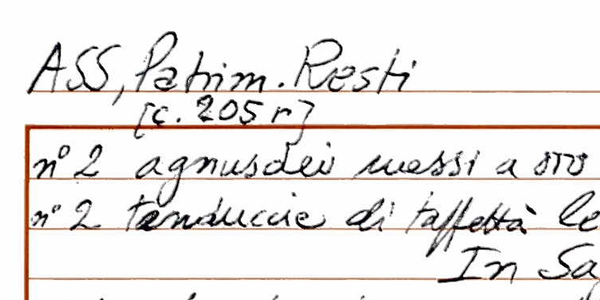 ASS, Patrim. Resti
[c. 205 r]
n° 2 agnusdei messi a oro
n° 2 tanduccie di taffettà le
In Sa